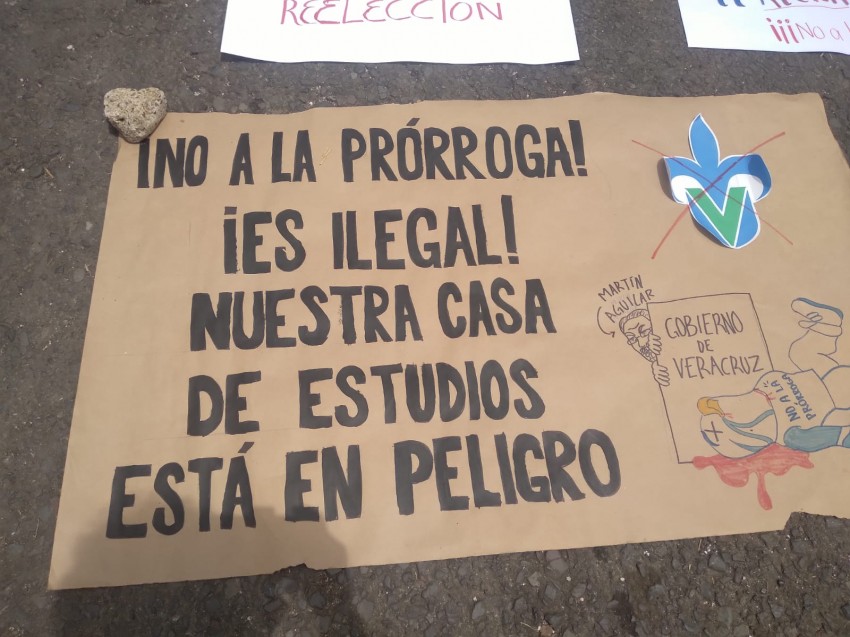 REELECCIÓN
¡¡¡No a l
¡NO A LA PRÓRROGA!
¡ES ILEGAL!
NUESTRA CASA
DE ESTUDIOS
ESTÁ EN PELIGRO
MARTÍN
AGUILAR
GOBIERNO
DE
VERACRUZ
NO A LA
PRÓRROGA